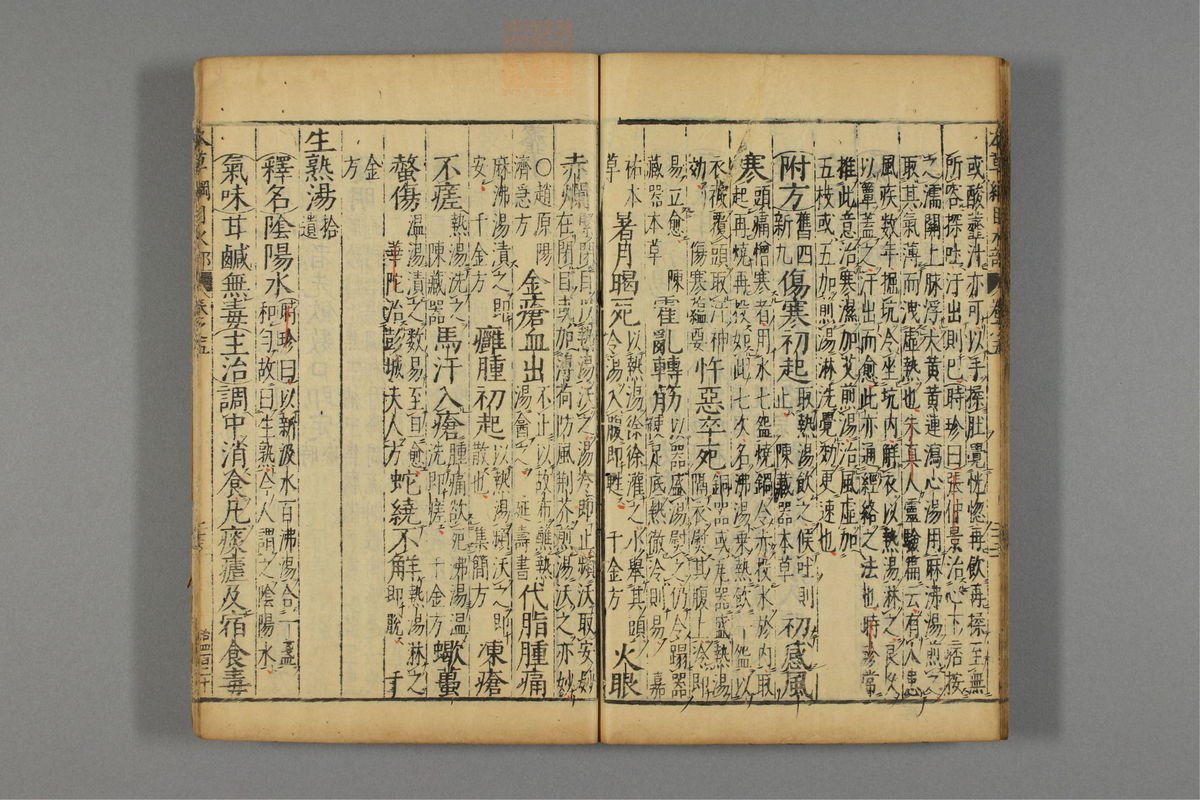 或酸虀汁亦可以手揉肚覺恍惚再飲再探至無
所吐探吐汗出則已時珍曰張仲景治心下痞按
之濡關上脉浮大黃黃連瀉心湯用麻沸湯煎之
取其氣薄而洩虛熱也朱真人靈驗篇云有人患
風疾数年掘坑令坐坑内解衣以熱湯淋之良久
以簟盖之汗出而愈此亦通經絡之法也時珍常
推此意治寒濕加艾煎湯治風虛加
五枝或五加煎湯淋洗覺効更速也
附方舊四新九傷寒初起取熱湯飲之候吐則止陳藏器本草初感風
寒頭痛憎寒者用水七盌燒鍋令赤投水於内取起再燒再投如此七次名沸湯乘熱飲一盌以
衣被覆頭取汗神効傷寒蘊要忤惡卒死銅器或瓦器盛熱湯隔衣熨其腹上冷即
易立愈陳藏器本草霍亂轉筋以器盛湯熨之仍令蹋器使足底熱徹冷則易嘉
祐本草暑月暍死以熱湯徐徐灌之小舉其頭令湯入腹即甦千金方火眼
赤爛閉目以熱湯沃之湯冷即止頻沃取安妙在閉目或加薄荷防風荆芥煎湯沃之亦妙
○趙原陽濟急方金瘡血出不止以故布蘸熱湯盦之延壽書代脂腫痛
麻沸湯漬之即安千金方癰腫初起以熱湯頻沃之即散也集簡方凍瘡
不瘥熱湯洗之陳藏器馬汗入瘡腫痛欲死沸湯温洗即瘥千金方蠍蠆
螫傷温湯漬之数易至旦愈華陀治彭城夫人方蛇繞不解熱湯淋之即脫千
金方
生熟湯拾遺
釋名陰陽水時珍曰以新汲水百沸湯合一盞和勻故曰生熟今人謂之陰陽水
氣味甘鹹無毒主治調中消食凡痰瘧及宿食毒